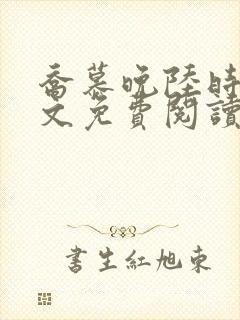 喬慕晚陸時
文免費閱讀
書生紅旭東